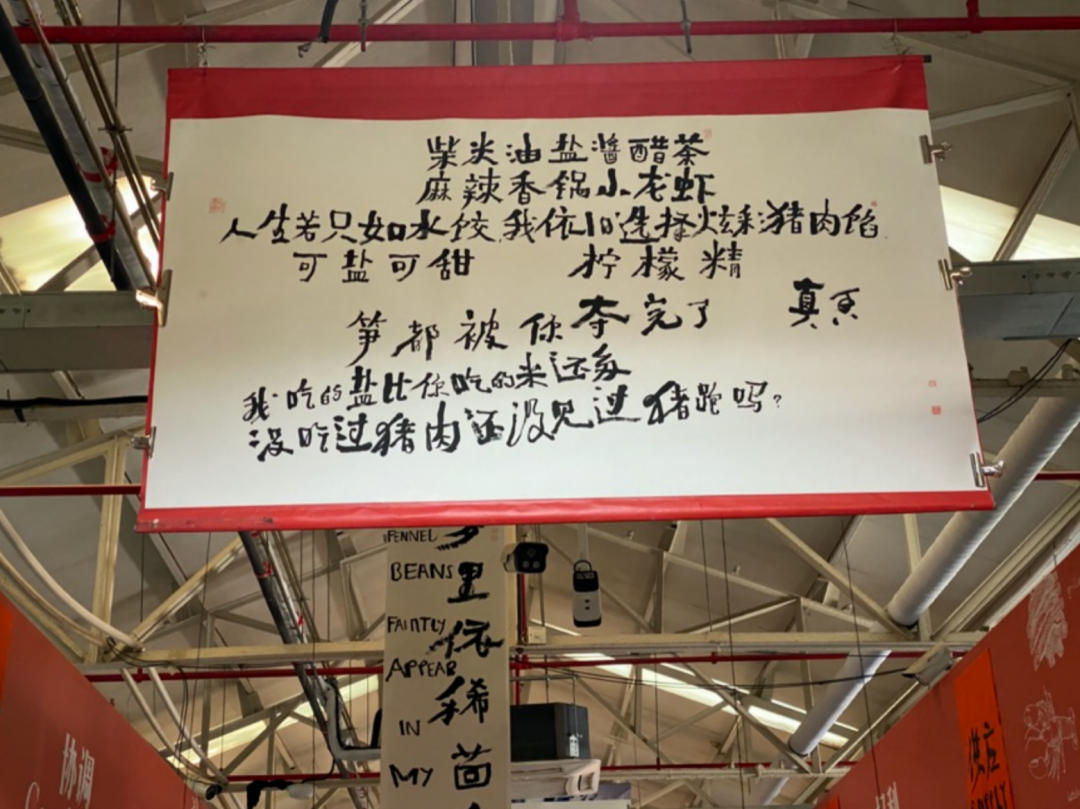 柴米油盐酱醋茶
麻辣香锅小龙虾
人生若只如水饺 我依旧选择炫彩猪肉馅
可盐可甜 柠檬精
真香
笋都被你夺完了
我吃的盐比你吃的米还多
没吃过猪肉还没见过猪跑吗?
FENNEL
BEANS
FAINTLY
APPEAR
IN
MY
梦里依稀茴
协调
供应